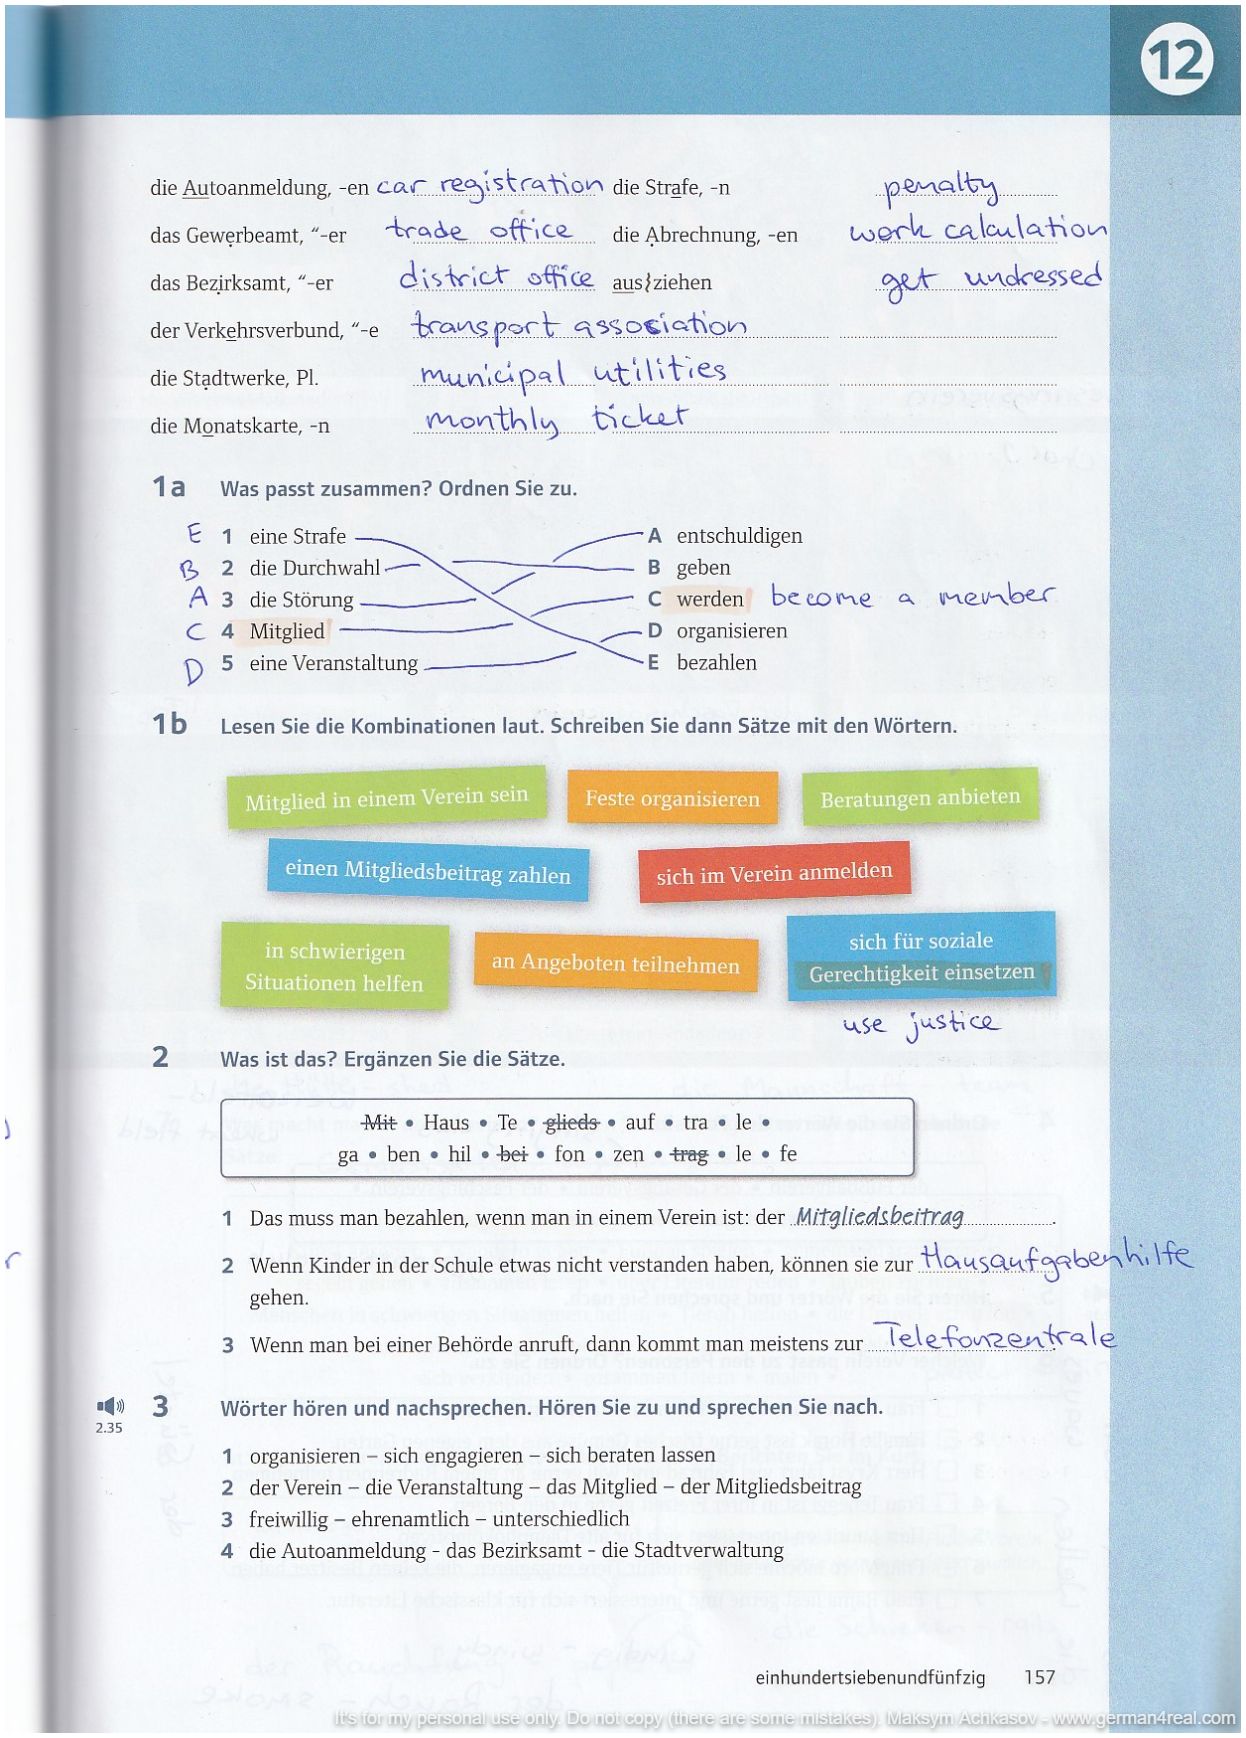 12
die Autoanmeldung, -en car registration die Strafe, -n penalty
das Gewerbeamt, “-er trade office die Abrechnung, -en work calculation
das Bezirksamt, “-er district office aus}ziehen get undressed
der Verkehrsverbund, “-e transport association
die Stadtwerke, Pl. municipal utilities
die Monatskarte, -n monthly ticket
1a Was passt zusammen? Ordnen Sie zu.
E 1 eine Strafe A entschuldigen
B 2 die Durchwahl B geben
A 3 die Störung C werden become a member
C 4 Mitglied D organisieren
D 5 eine Veranstaltung E bezahlen
1b Lesen Sie die Kombinationen laut. Schreiben Sie dann Sätze mit den Wörtern.
Mitglied in einem Verein sein Feste organisieren Beratungen anbieten
einen Mitgliedsbeitrag zahlen sich im Verein anmelden
in schwierigen
Situationen helfen
an Angeboten teilnehmen
sich für soziale
Gerechtigkeit einsetzen
use justice
2 Was ist das? Ergänzen Sie die Sätze.
Mit • Haus • Te • glieds • auf • tra • le •
ga • ben • hil • bei • fon • zen • trag • le • fe
1 Das muss man bezahlen, wenn man in einem Verein ist: der Mitgliedsbeitrag.
2 Wenn Kinder in der Schule etwas nicht verstanden haben, können sie zur Hausaufgabenhilfe
gehen.
3 Wenn man bei einer Behörde anruft, dann kommt man meistens zur Telefonzentrale.
2.35
3 Wörter hören und nachsprechen. Hören Sie zu und sprechen Sie nach.
1 organisieren – sich engagieren – sich beraten lassen
2 der Verein – die Veranstaltung – das Mitglied – der Mitgliedsbeitrag
3 freiwillig – ehrenamtlich – unterschiedlich
4 die Autoanmeldung - das Bezirksamt - die Stadtverwaltung
einhundertsiebenundfünfzig 157
It's for my personal use only. Do not copy (there are some mistakes). Maksym Achkasov - www.german4real.com